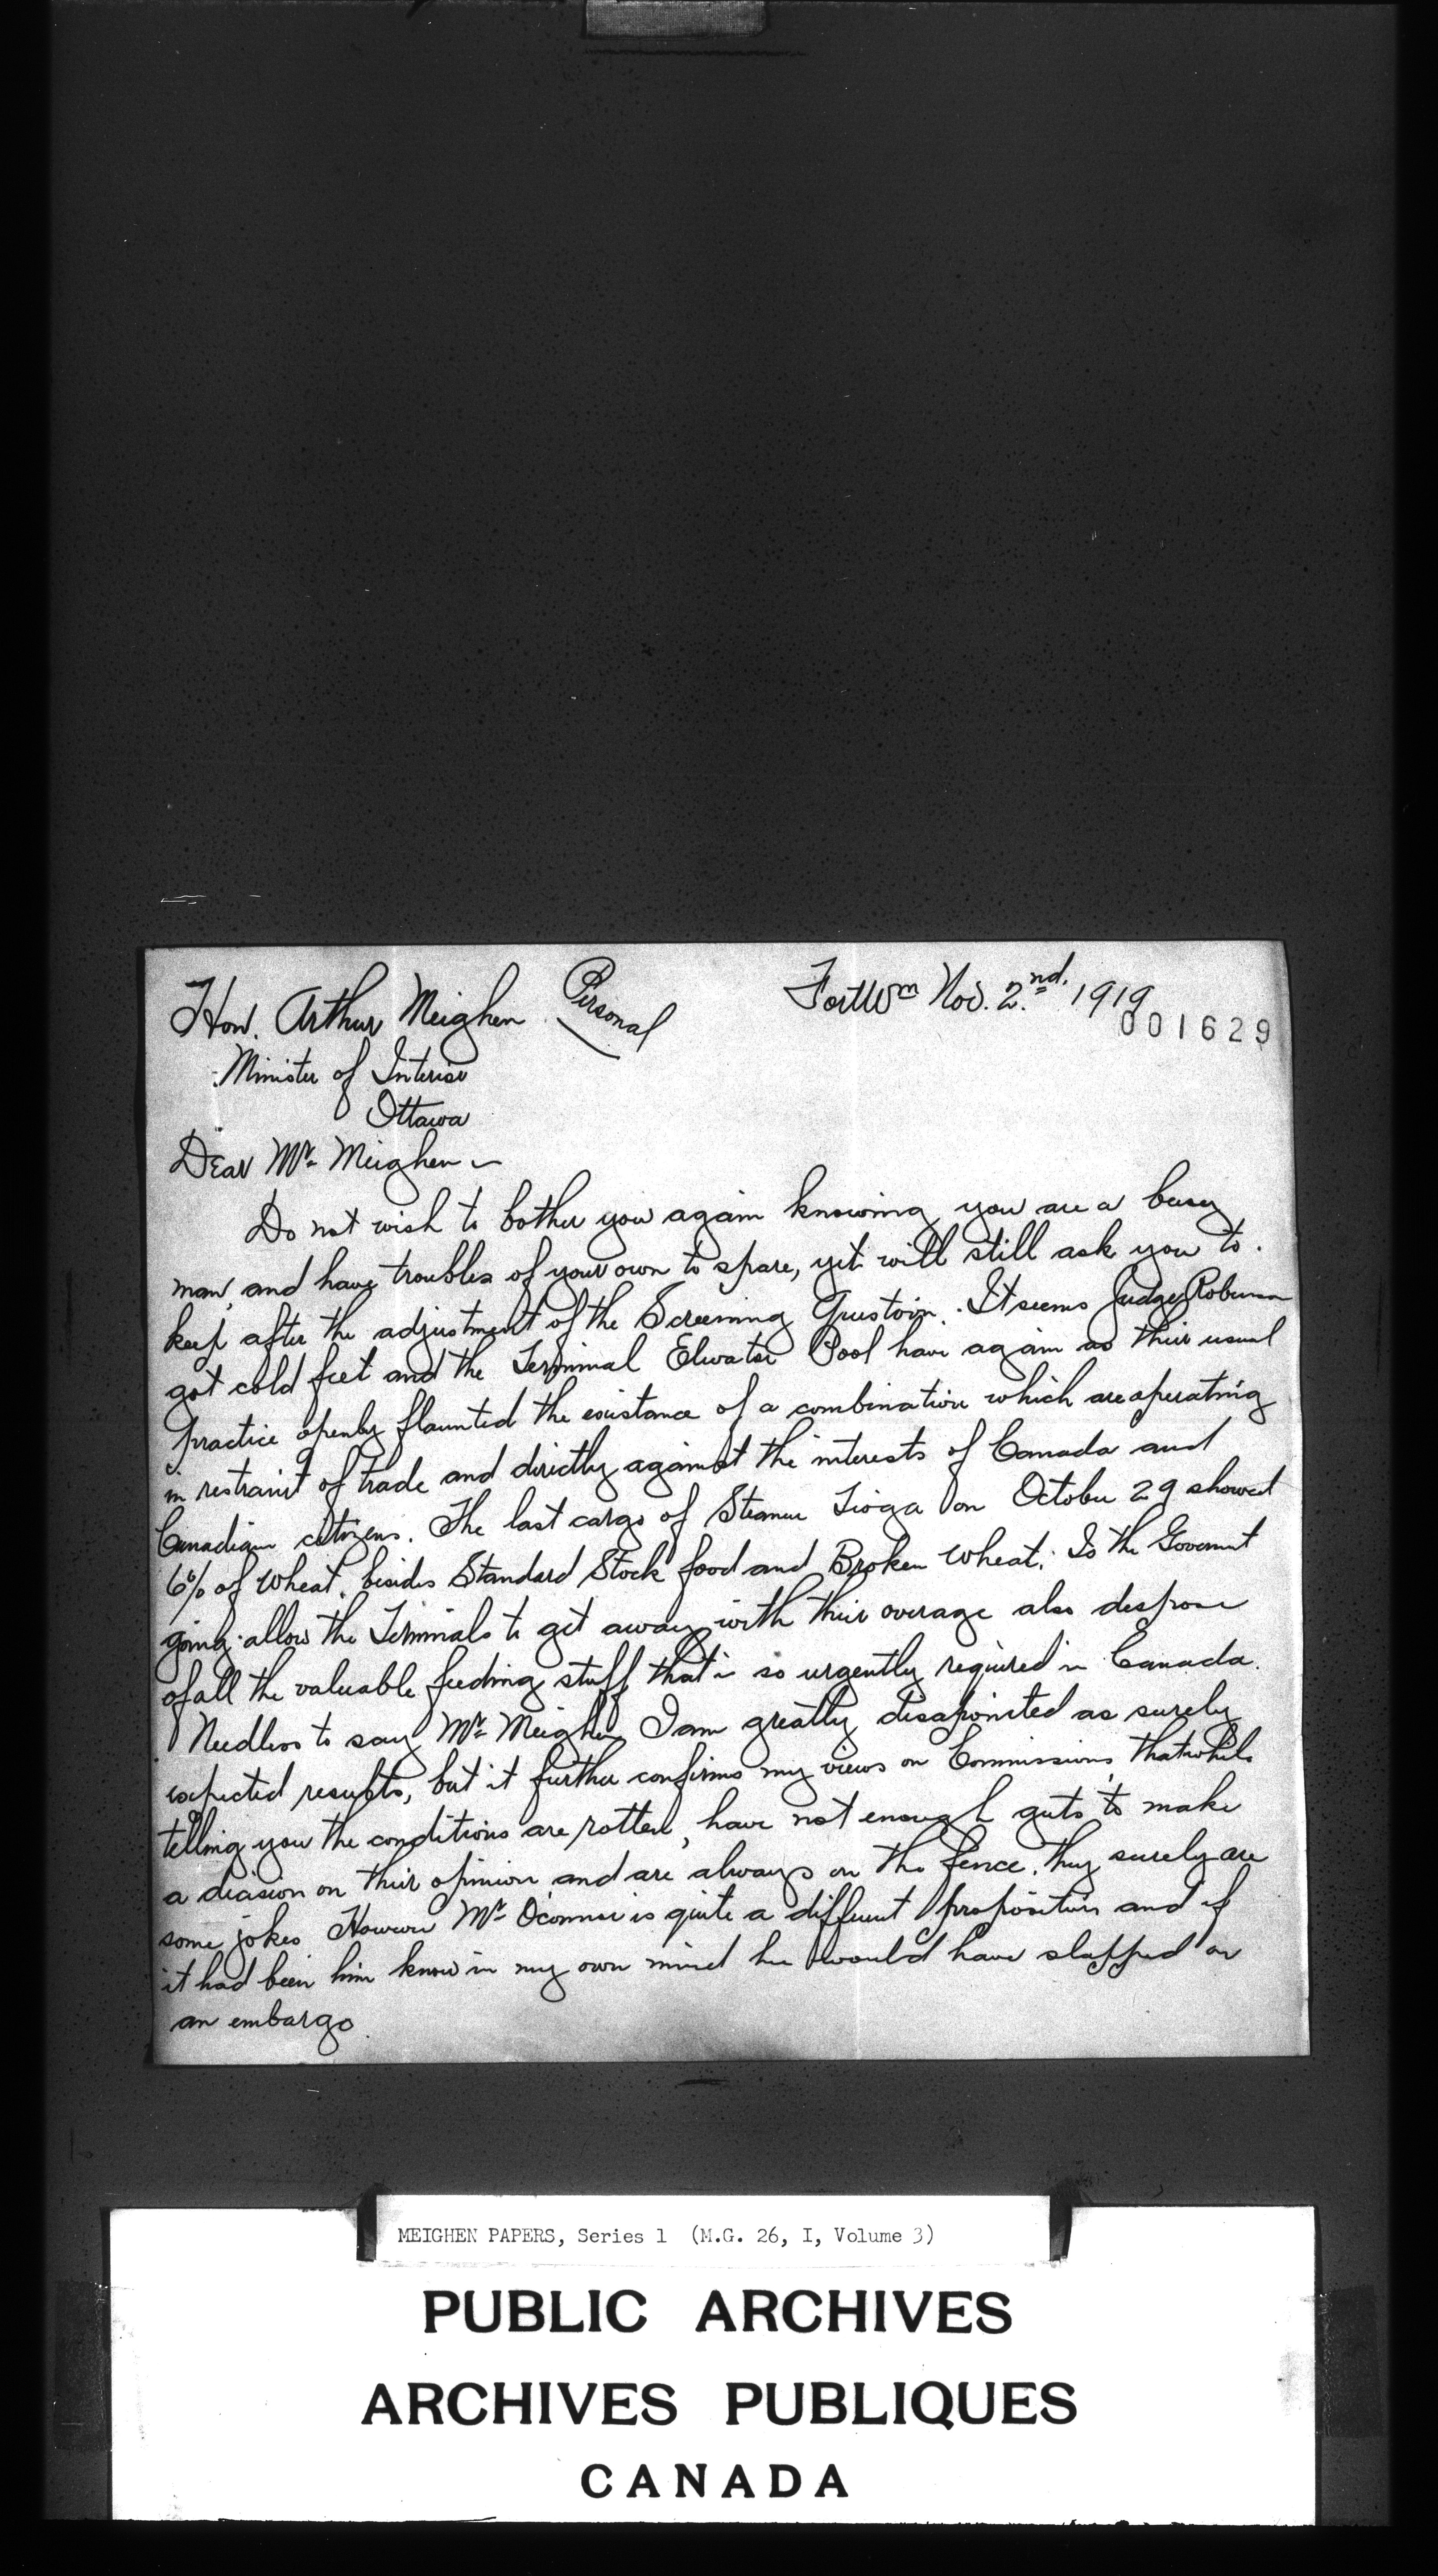 Hon. Arthur Meighen Personal FortWm Nov. 2nd. 1919
001629
Minister of Interior
Ottawa
Dear Mr Meighen ~
Do not wish to bother you again knowing you are a busy
man, and have troubles of your own to spare, yet will still ask you to
keep after the adjustment of the Screening Question. It seems Judge Robinson
got cold feet and the Terminal Elevator Pool have again as their usual
practice openly flaunted the existance of a combination which are operating
in restraint of trade and directly against the interests of Canada and
Canadian citizens. The last cargo of Steamer Tioga on October 29 showed
6% of Wheat, besides Standard Stock food and Broken Wheat. Is the Government
going allow the Terminals to get away with their overage also dispose
of all the valuable feeding stuff that is so urgently required in Canada.
Needless to say Mr Meighen I am greatly disapointed as surely
expected results, but it further confirms my views on Commissions, that while
telling you the conditions are rotten, have not enough guts to make
a decision on their opinion and are always on the fence. they surely are
some jokes However Mr O'connor is quite a different proposition and if
it had been him know in my own mind he would have slapped on
an embargo.
MEIGHEN PAPERS, Series 1 (M.G. 26, I, Volume 3)
PUBLIC ARCHIVES
ARCHIVES PUBLIQUES
CANADA